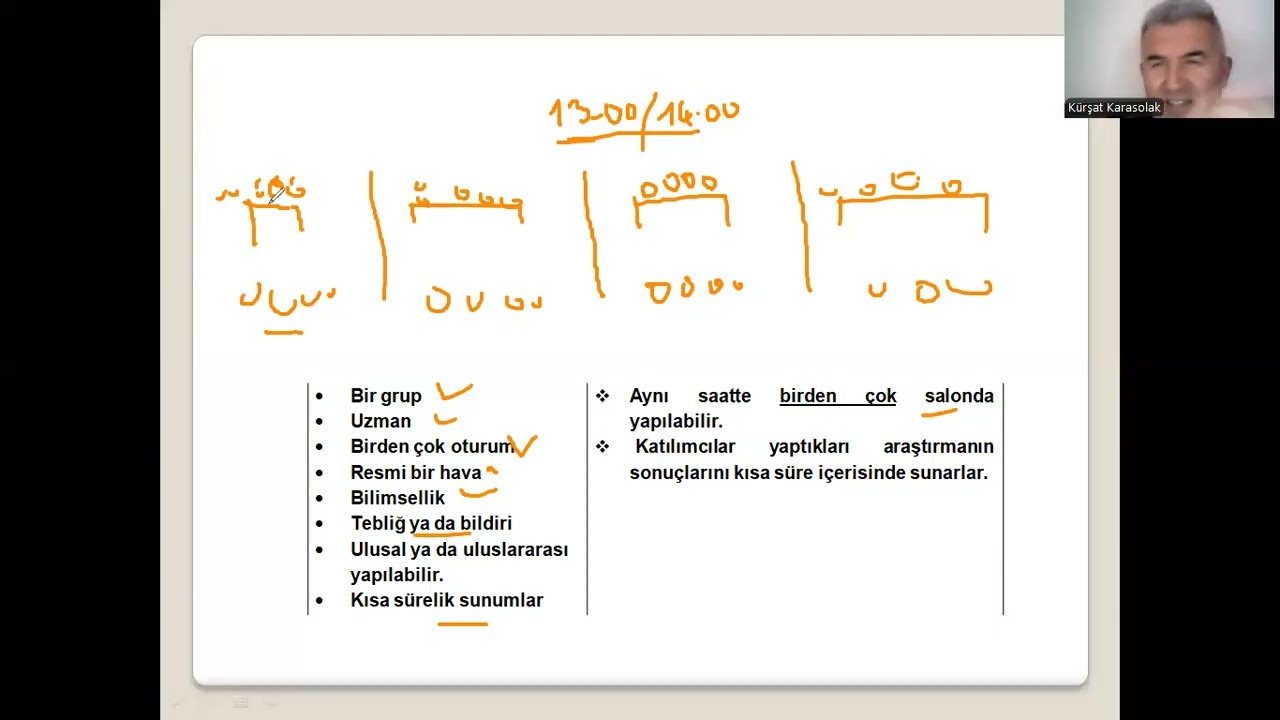 Kürşat Karasolak
13.00/14.00
Bir grup
Uzman
Birden çok oturum
Resmi bir hava
Bilimsellik
Tebliğ ya da bildiri
Ulusal ya da uluslararası
yapılabilir.
Kısa sürelik sunumlar
Aynı saatte birden çok salonda
yapılabilir.
Katılımcılar yaptıkları araştırmanın
sonuçlarını kısa süre içerisinde sunarlar.